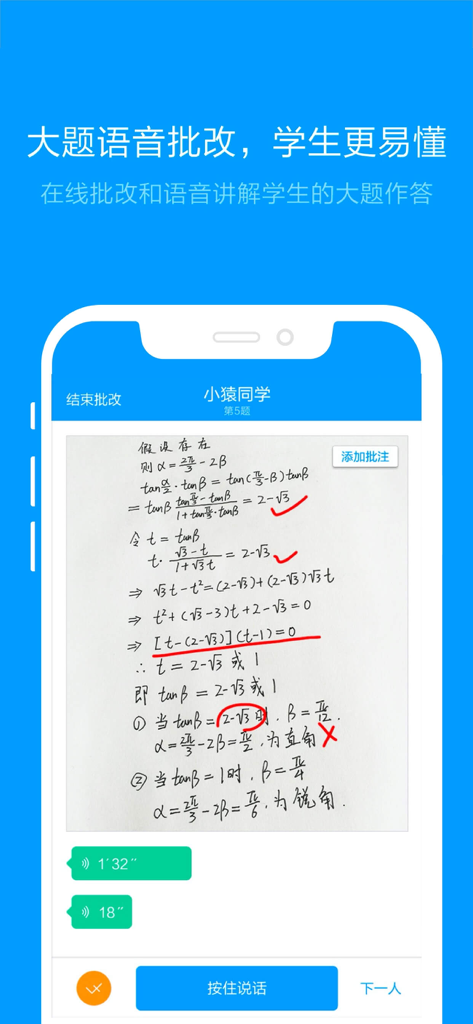 大题语音批改，学生更易懂
在线批改和语音讲解学生的大题作答
结束批改
小猿同学
第5题
添加批注
假设存在
则α=2π/3-2β
tanα/2·tanβ=tan(π/3-β)tanβ
=tanβ (tanπ/3-tanβ)/(1+tanπ/3·tanβ)=2-√3
令t=tanβ
t·(√3-t)/(1+√3t)=2-√3
⇒ √3t-t²=(2-√3)+(2-√3)√3t
⇒ t²+(√3-3)t+2-√3=0
⇒ [t-(2-√3)](t-1)=0
∴ t=2-√3或1
即 tanβ=2-√3或1
① 当tanβ=2-√3时，β=π/12.
α=2π/3-2β=π/2，为直角
② 当tanβ=1时，β=π/4
α=2π/3-2β=π/6，为锐角.
1′32″
18″
按住说话
下一人